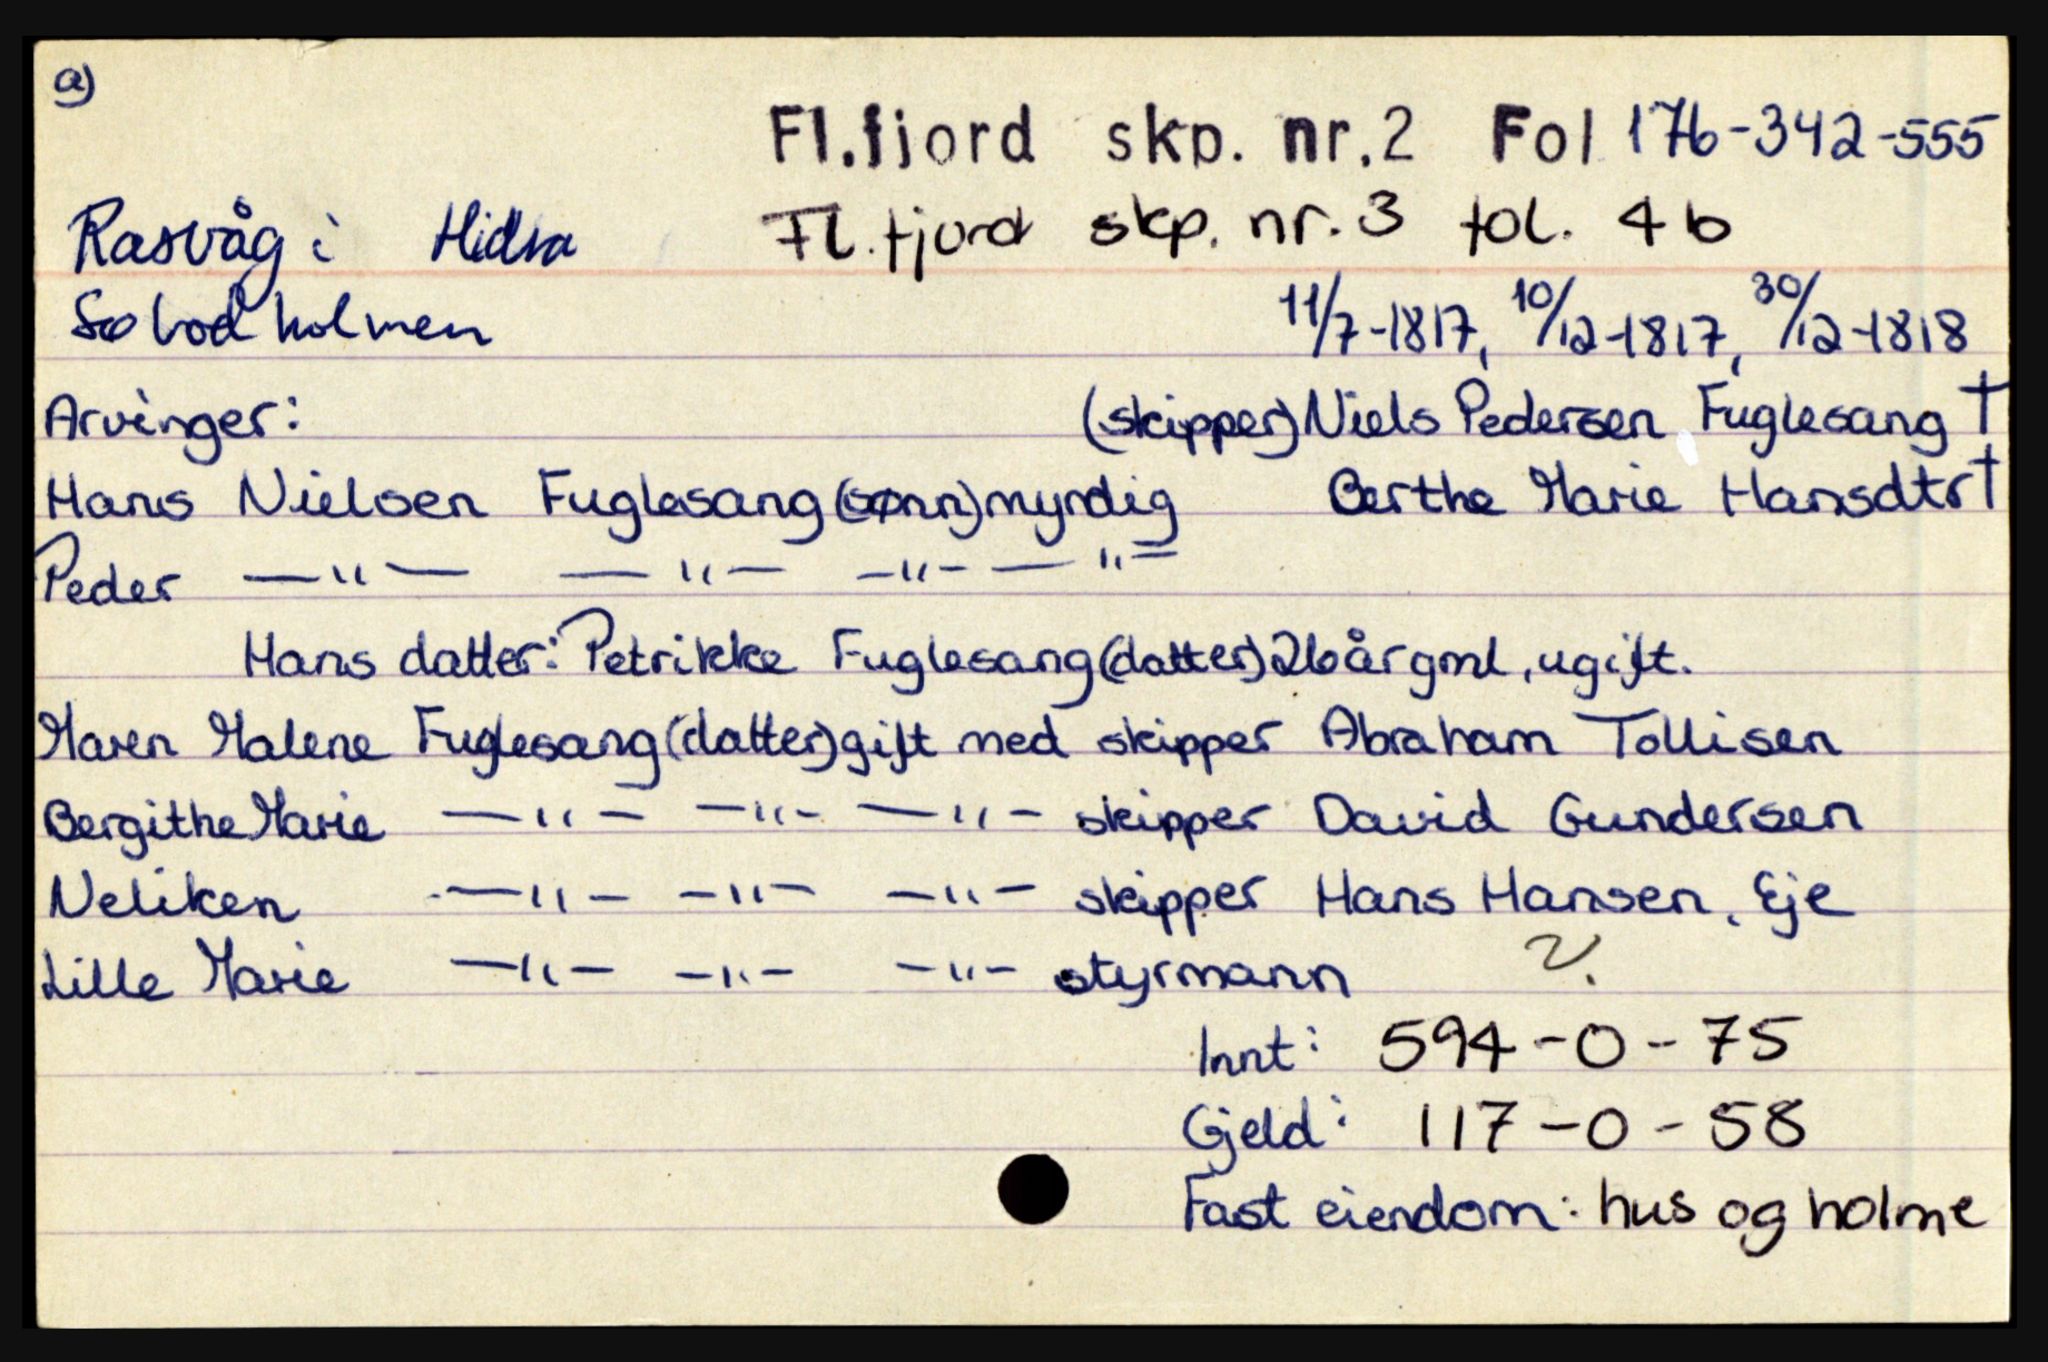 a)
Fl.fjord skp. nr.2 Fol 176-342-555
Rasvåg i Hidra Fl.fjord skp. nr.3 fol. 4b
Søbodholmen 11/7-1817, 10/12-1817, 30/12-1818
Arvinger: (skipper) Niels Pedersen Fuglesang †
Hans Nielsen Fuglesang (sønn) myndig Berthe Marie Hansdtr †
Peder —"— —"— —"— —"—
Hans datter: Petrikke Fuglesang (datter) 26 år gml, ugift.
Maren Malene Fuglesang (datter) gift med skipper Abraham Tollisen
Bergithe Marie —"— —"— —"— skipper David Gundersen
Neliken —"— —"— —"— skipper Hans Hansen, Eje
Lille Marie —"— —"— —"— styrmann
Innt: 594-0-75
Gjeld: 117-0-58
Fast eiendom: hus og holme